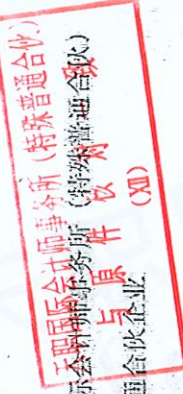 天职国际会计师事务所（特殊普通合伙）
与原件核对一致
（XII）
际会计师事务所（特殊普通合伙）
通合伙企业